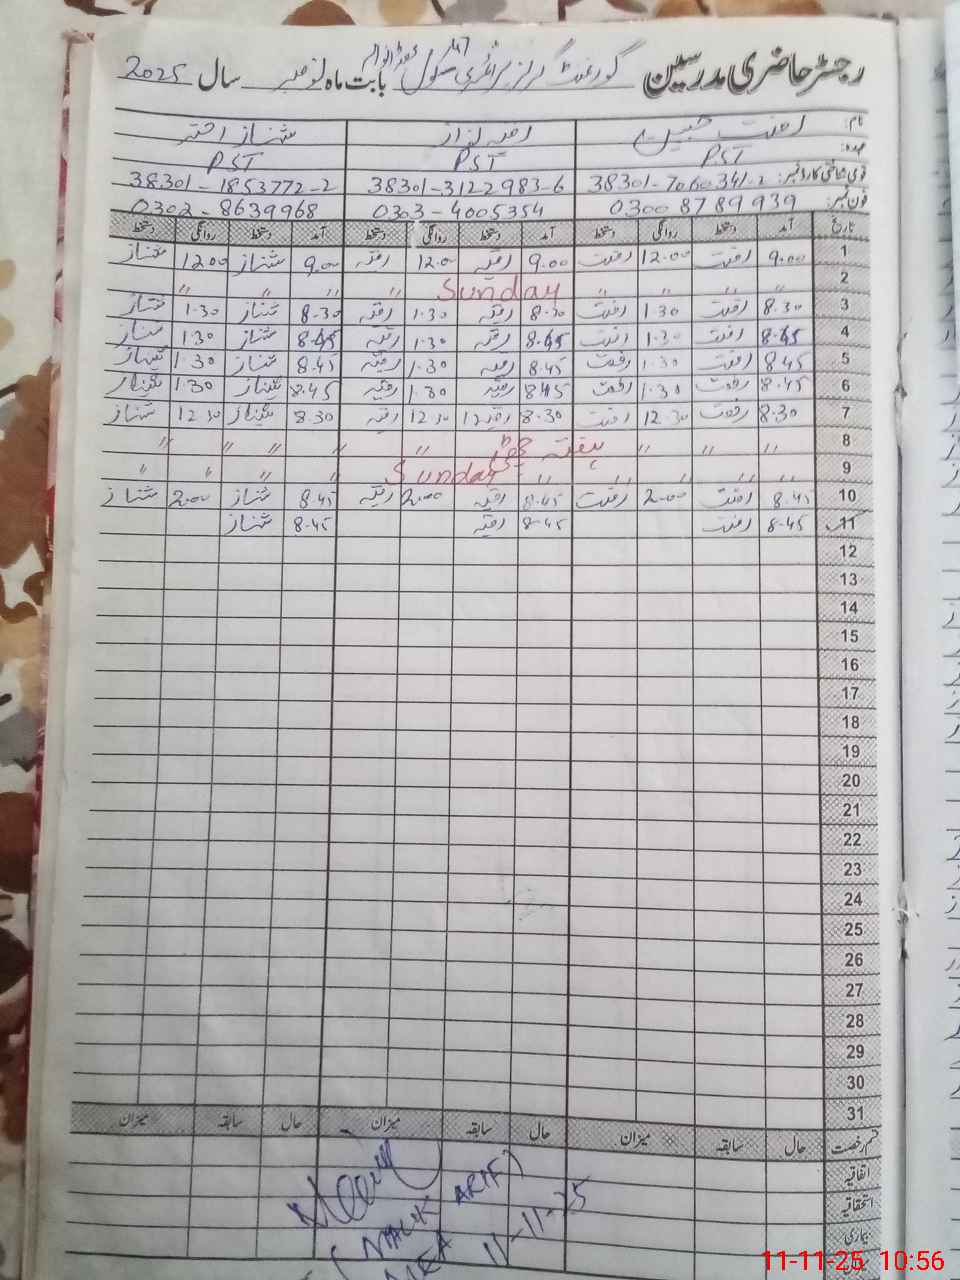 رجسٹر حاضری مدرسین گورنمنٹ گرلز پرائمری سکول بابت ماہ نومبر سال 2025
نام: رفعت شہناز اختر
عہدہ: PST PST PST
قومی شناختی کارڈ نمبر: 38301-7060341-2 38301-3122983-6 38301-1853772-2
فون نمبر: 0300 8789939 0303-4005354 0302-8639968
تاریخ آمد دستخط روانگی دستخط آمد دستخط روانگی دستخط آمد دستخط روانگی دستخط
1 9.00 رفعت 12.00 رفعت 9.00 رقیہ 12.00 رقیہ 9.00 شہناز 12.00 شہناز
2 " " " " Sunday " " " " "
3 8.30 رفعت 1.30 رفعت 8.30 رقیہ 1.30 رقیہ 8.30 شہناز 1.30 شہناز
4 8.45 رفعت 1.30 رفعت 8.45 رقیہ 1.30 رقیہ 8.45 شہناز 1.30 شہناز
5 8.45 رفعت 1.30 رفعت 8.45 رقیہ 1.30 رقیہ 8.45 شہناز 1.30 شہناز
6 8.45 رفعت 1.30 رفعت 8.45 رقیہ 1.30 رقیہ 8.45 شہناز 1.30 شہناز
7 8.30 رفعت 12.30 رفعت 8.30 رقیہ 12.30 رقیہ 8.30 شہناز 12.30 شہناز
8 " " " ہفتہ چھٹی " " " " "
9 " " " " Sunday " " " "
10 8.45 رفعت 2.00 رفعت 8.45 رقیہ 2.00 رقیہ 8.45 شہناز 2.00 شہناز
11 8.45 رفعت 8.45 رقیہ 8.45 شہناز
12
13
14
15
16
17
18
19
20
21
22
23
24
25
26
27
28
29
30
31
قسم رخصت حال سابقہ میزان حال سابقہ میزان حال سابقہ میزان
اتفاقیہ
استحقاقیہ
بیماری
(MALIK ARIF)
MEA 11-11-25
11-11-25 10:56